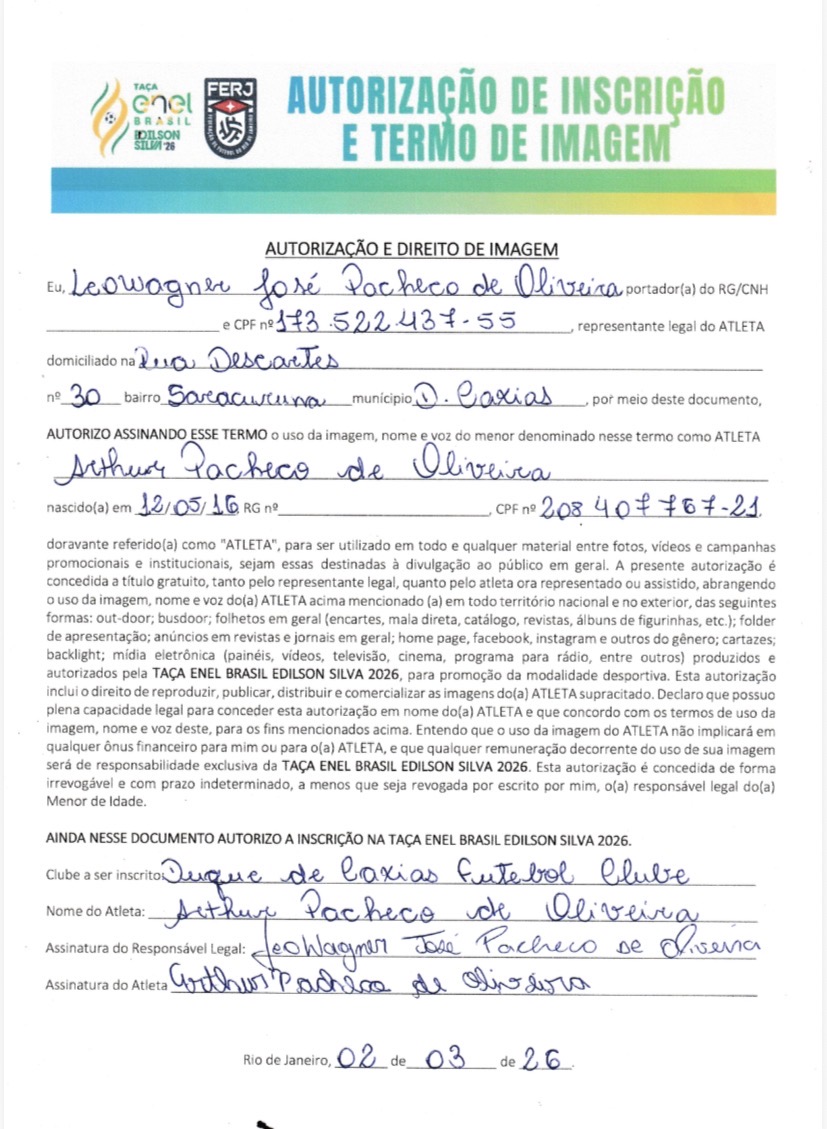 TAÇA
enel
BRASIL
EDILSON
SILVA '26
FERJ
AUTORIZAÇÃO DE INSCRIÇÃO
E TERMO DE IMAGEM
AUTORIZAÇÃO E DIREITO DE IMAGEM
Eu, Leowagner José Pacheco de Oliveira portador(a) do RG/CNH
e CPF nº 173.522.437-55, representante legal do ATLETA
domiciliado na Rua Descartes
nº 30 bairro Saracuruna município D. Caxias, por meio deste documento,
AUTORIZO ASSINANDO ESSE TERMO o uso da imagem, nome e voz do menor denominado nesse termo como ATLETA
Arthur Pacheco de Oliveira
nascido(a) em 12/05/16 RG nº , CPF nº 208 407 767-21.
doravante referido(a) como "ATLETA", para ser utilizado em todo e qualquer material entre fotos, vídeos e campanhas
promocionais e institucionais, sejam essas destinadas à divulgação ao público em geral. A presente autorização é
concedida a título gratuito, tanto pelo representante legal, quanto pelo atleta ora representado ou assistido, abrangendo
o uso da imagem, nome e voz do(a) ATLETA acima mencionado (a) em todo território nacional e no exterior, das seguintes
formas: out-door; busdoor; folhetos em geral (encartes, mala direta, catálogo, revistas, álbuns de figurinhas, etc.); folder
de apresentação; anúncios em revistas e jornais em geral; home page, facebook, instagram e outros do gênero; cartazes;
backlight; mídia eletrônica (painéis, vídeos, televisão, cinema, programa para rádio, entre outros) produzidos e
autorizados pela TAÇA ENEL BRASIL EDILSON SILVA 2026, para promoção da modalidade desportiva. Esta autorização
inclui o direito de reproduzir, publicar, distribuir e comercializar as imagens do(a) ATLETA supracitado. Declaro que possuo
plena capacidade legal para conceder esta autorização em nome do(a) ATLETA e que concordo com os termos de uso da
imagem, nome e voz deste, para os fins mencionados acima. Entendo que o uso da imagem do ATLETA não implicará em
qualquer ônus financeiro para mim ou para o(a) ATLETA, e que qualquer remuneração decorrente do uso de sua imagem
será de responsabilidade exclusiva da TAÇA ENEL BRASIL EDILSON SILVA 2026. Esta autorização é concedida de forma
irrevogável e com prazo indeterminado, a menos que seja revogada por escrito por mim, o(a) responsável legal do(a)
Menor de Idade.
AINDA NESSE DOCUMENTO AUTORIZO A INSCRIÇÃO NA TAÇA ENEL BRASIL EDILSON SILVA 2026.
Clube a ser inscrito: Duque de Caxias Futebol Clube
Nome do Atleta: Arthur Pacheco de Oliveira
Assinatura do Responsável Legal: Leowagner José Pacheco de Oliveira
Assinatura do Atleta Arthur Pacheco de Oliveira
Rio de Janeiro, 02 de 03 de 26.